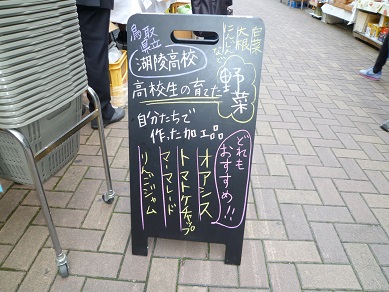 鳥取
県立
湖陵高校
白菜
大根
にんじん
高校生の育てた
野菜
自分たちで
作った加工品
どれも
おすすめ!!
オアシス
トマトケチャップ
マーマレード
りんごジャム